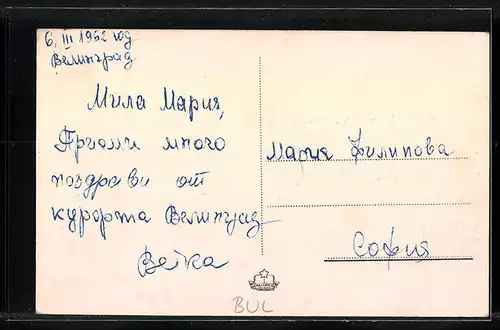 6. III 1952 год
Велинград
Мила Мария,
Приеми много
поздрави от
курорта Велинград
Ветка
Мария Филипова
София
BUL